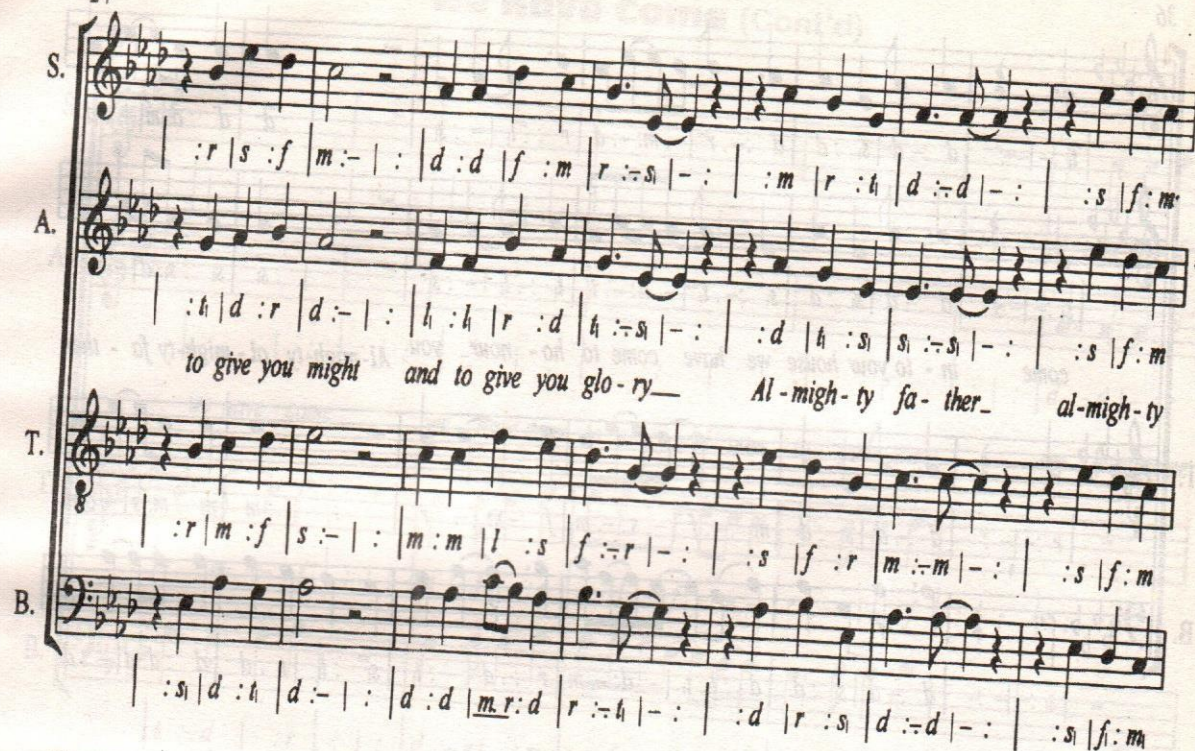 S.
:r |s :f |m :– | : |d :d |f :m |r :-s₁ |– : | :m |r :t₁ |d :-d |– : | :s |f :m
A.
:t₁ |d :r |d :– | : |l₁ :l₁ |r :d |t₁ :-s₁ |– : | :d |t₁ :s₁ |s₁ :-s₁ |– : | :s |f :m
to give you might and to give you glo - ry__ Al - migh - ty fa - ther_ al - migh - ty
T.
8
:r |m :f |s :– | : |m :m |l :s |f :-r |– : | :s |f :r |m :-m |– : | :s |f :m
B.
:s₁ |d :t₁ |d :– | : |d :d |m.r :d |r :-t₁ |– : | :d |r :s₁ |d :-d |– : | :s₁ |f₁ :m₁